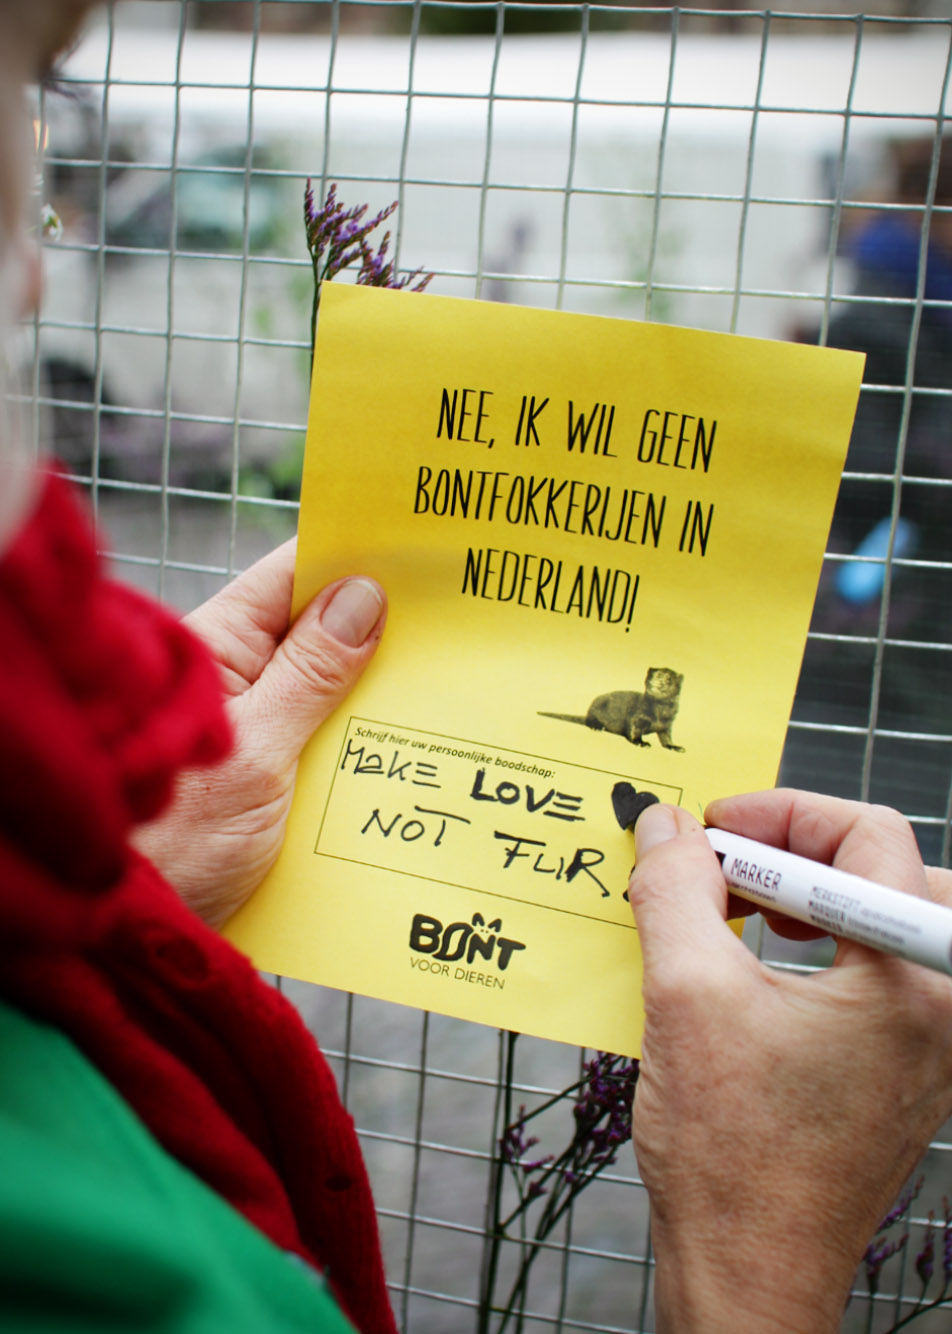 NEE, IK WIL GEEN
BONTFOKKERIJEN IN
NEDERLAND!
Schrijf hier uw persoonlijke boodschap:
MAKE LOVE ♥
NOT FUR
BONT
VOOR DIEREN
MARKER